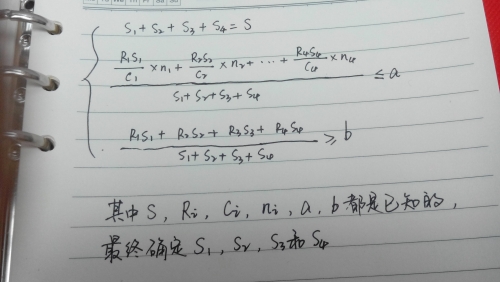 S₁ + S₂ + S₃ + S₄ = S
R₁S₁/C₁ × n₁ + R₂S₂/C₂ × n₂ + ⋯ + R₄S₄/C₄ × n₄
S₁ + S₂ + S₄ ≤ a
R₁S₁ + R₂S₂ + R₃S₃ + R₄S₄
S₁ + S₂ + S₃ + S₄ ≥ b
其中 S, Ri, Ci, ni, a, b 都是已知的,
最终确定 S₁, S₂, S₃和 S₄